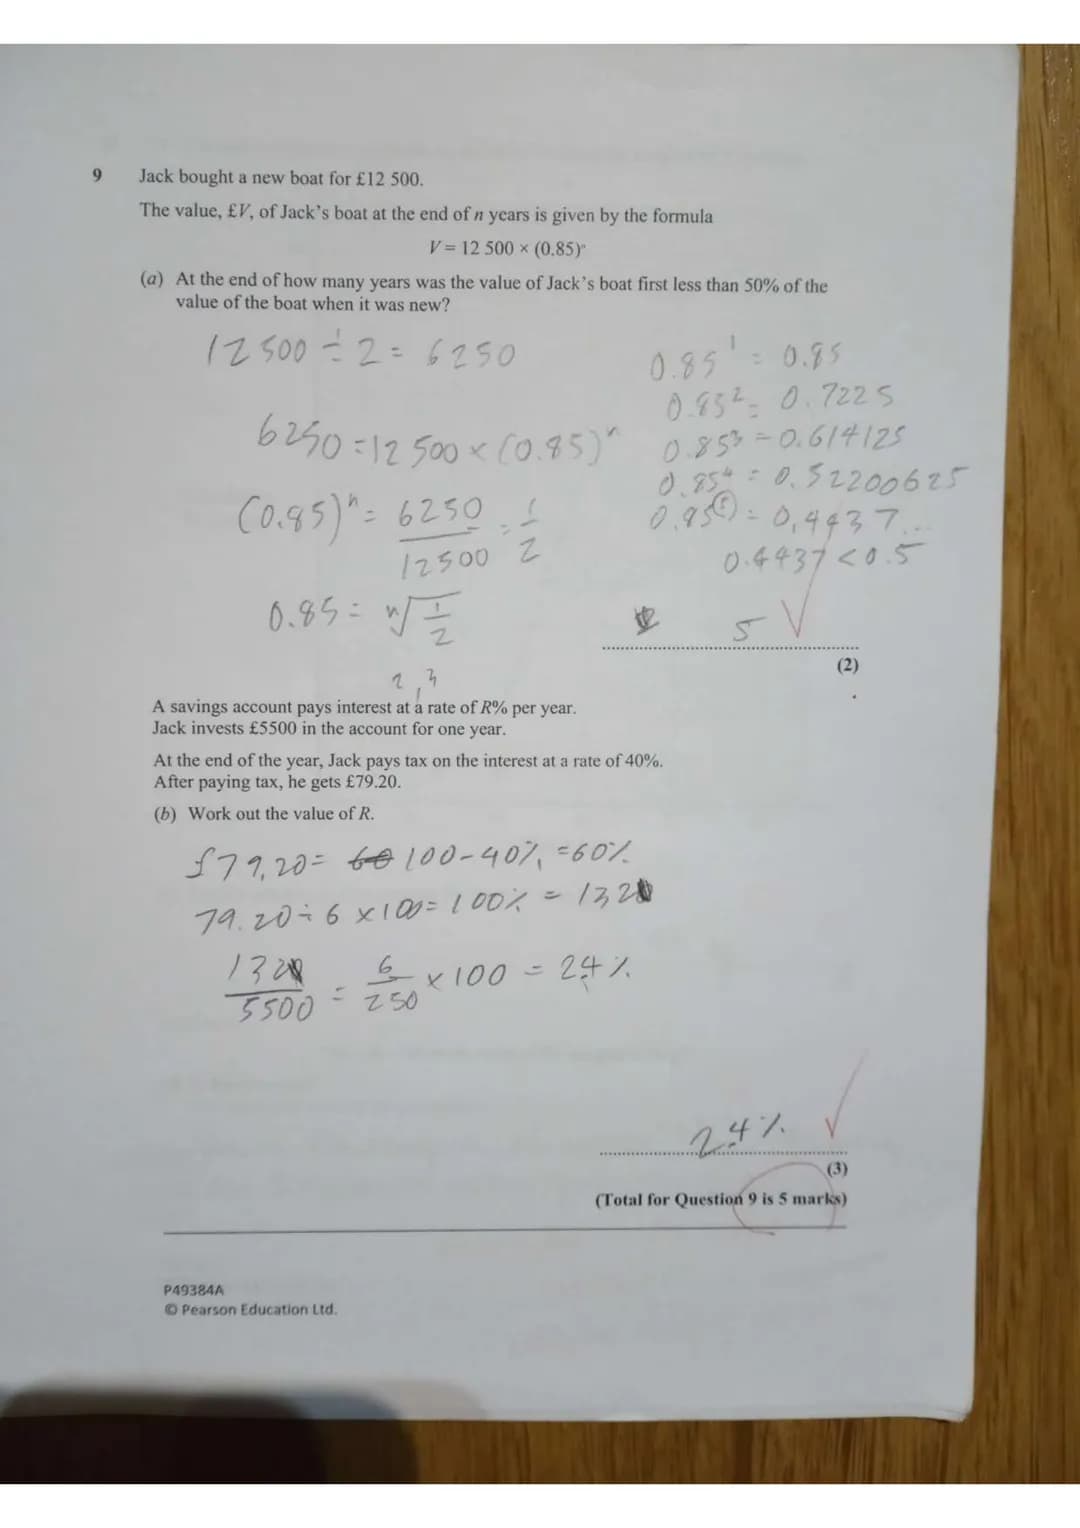 9 Jack bought a new boat for £12 500.
The value, £V, of Jack's boat at the end of n years is given by the formula
V = 12 500 × (0.85)ⁿ
(a) At the end of how many years was the value of Jack's boat first less than 50% of the
value of the boat when it was new?
12500 ÷ 2 = 6250
0.85¹ = 0.85
0.85² = 0.7225
6250 = 12500 × (0.85)ⁿ
0.85³ = 0.614125
0.85⁴ = 0.52200625
(0.85)ⁿ = 6250/12500 = 1/2
0.85⁵ = 0,4437...
0.4437 < 0.5
0.85 = ⁿ√1/2
5 ✓
(2)
2,3
A savings account pays interest at a rate of R% per year.
Jack invests £5500 in the account for one year.
At the end of the year, Jack pays tax on the interest at a rate of 40%.
After paying tax, he gets £79.20.
(b) Work out the value of R.
£79,20 = 60 100-40% = 60%
79.20 ÷ 6 × 100 = 100% = 132
132/5500 = 6/250 × 100 = 2.4%
2.4% ✓
(3)
(Total for Question 9 is 5 marks)
P49384A
© Pearson Education Ltd.